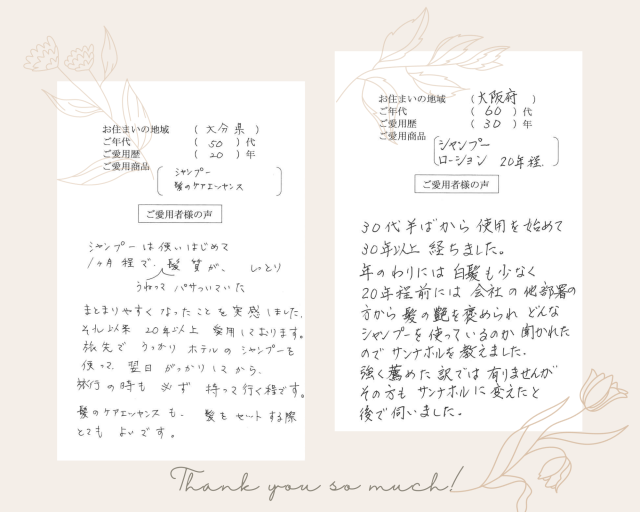 お住まいの地域 (大分県)
ご年代 (50)代
ご愛用歴 (20)年
ご愛用商品
シャンプー
髪のケアエッセンス
ご愛用者様の声
シャンプーは使いはじめて
1ヶ月程で、髪質が、しっとり
うねってパサついていた
まとまりやすくなったことを実感しました。
それ以来 20年以上 愛用しております。
旅先で うっかり ホテルのシャンプーを
使って、翌日 がっかりしてから、
旅行の時も 必ず 持って行く程です。
髪のケアエッセンスも、髪をセットする際
とても よいです。
お住まいの地域 (大阪府)
ご年代 (60)代
ご愛用歴 (30)年
ご愛用商品
シャンプー
ローション 20年程.
ご愛用者様の声
30代半ばから使用を始めて
30年以上経ちました。
年のわりには白髪も少なく
20年程前には会社の他部署の
方から髪の艶を褒められどんな
シャンプーを使っているのか聞かれた
のでサンナホルを教えました.
強く薦めた訳では有りませんが
その方もサンナホルに変えたと
後で伺いました。
Thank you so much!